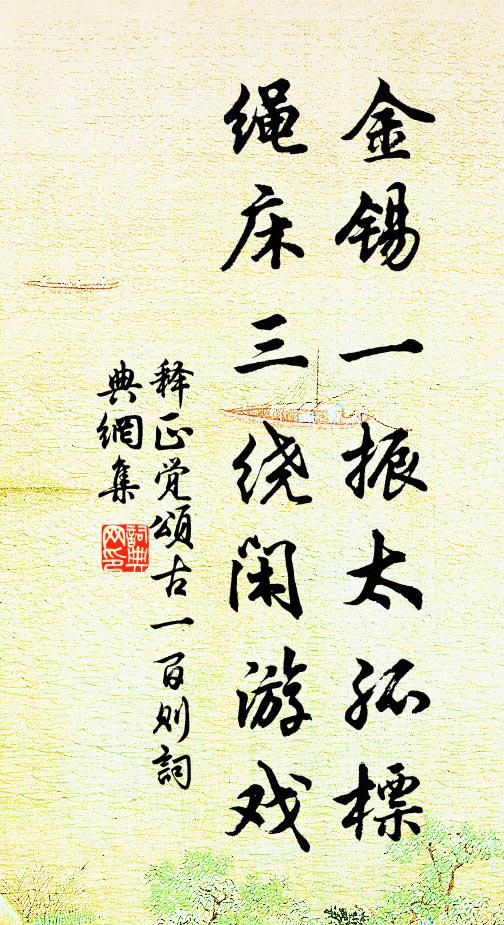 金锡一振太孤標
绳床三绕闲游戏
释正觉頌古一百则詞
典網集
詞典
网印